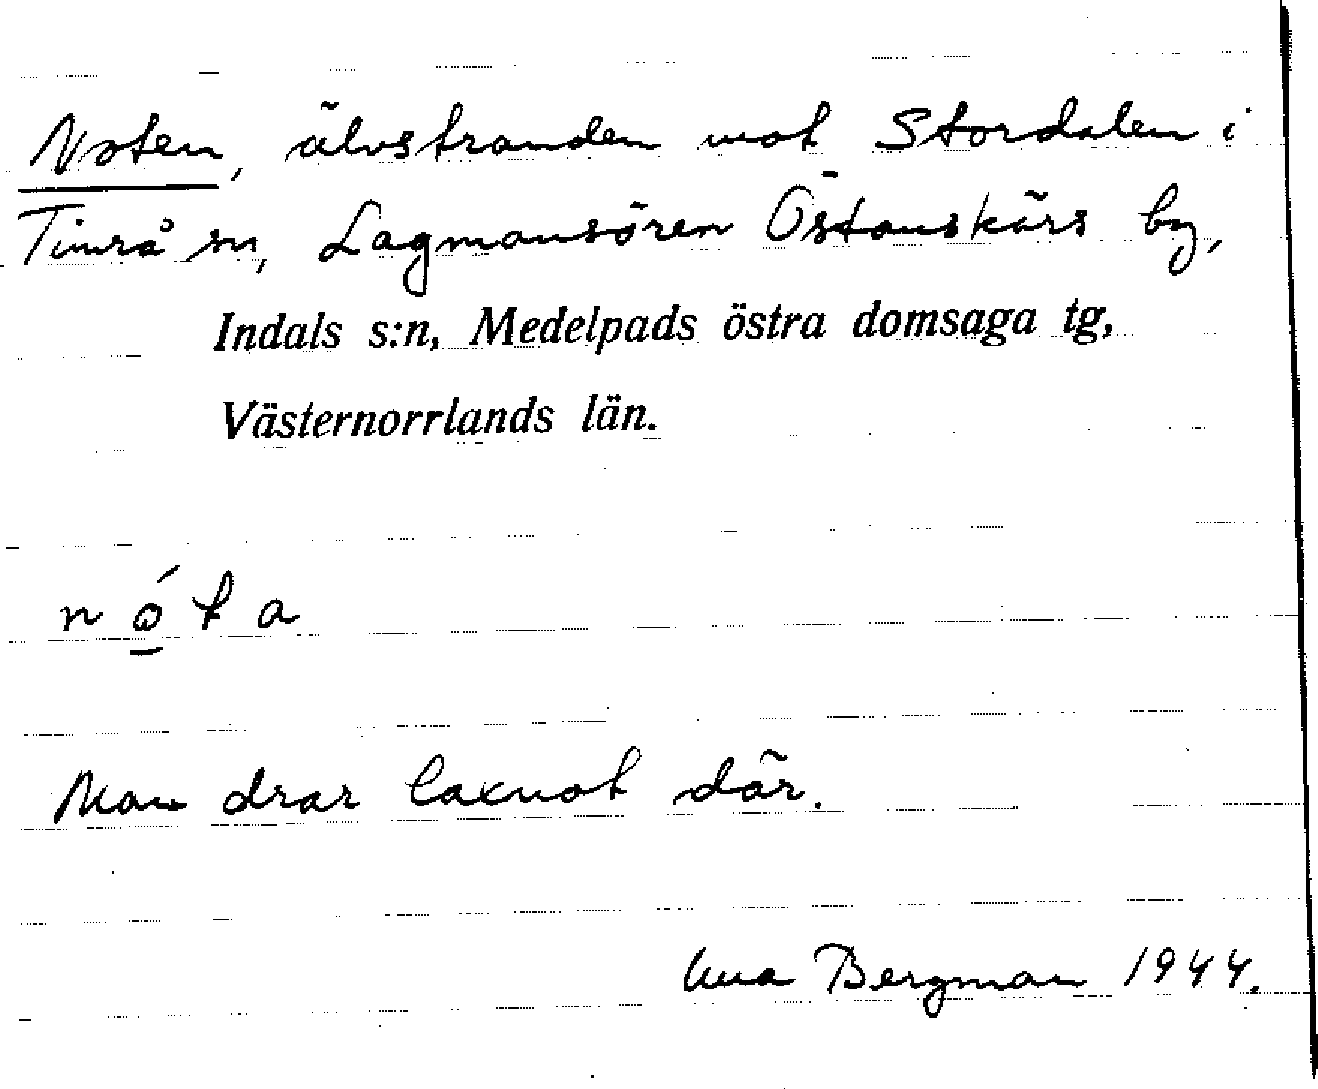 Noten, älvstranden mot Stordalen i
Timrå sn, Lagmansören Östanskärs by,
Indals s:n, Medelpads östra domsaga tg,
Västernorrlands län.
nó̲ta
Man drar laxnot där.
Bergman 1944.